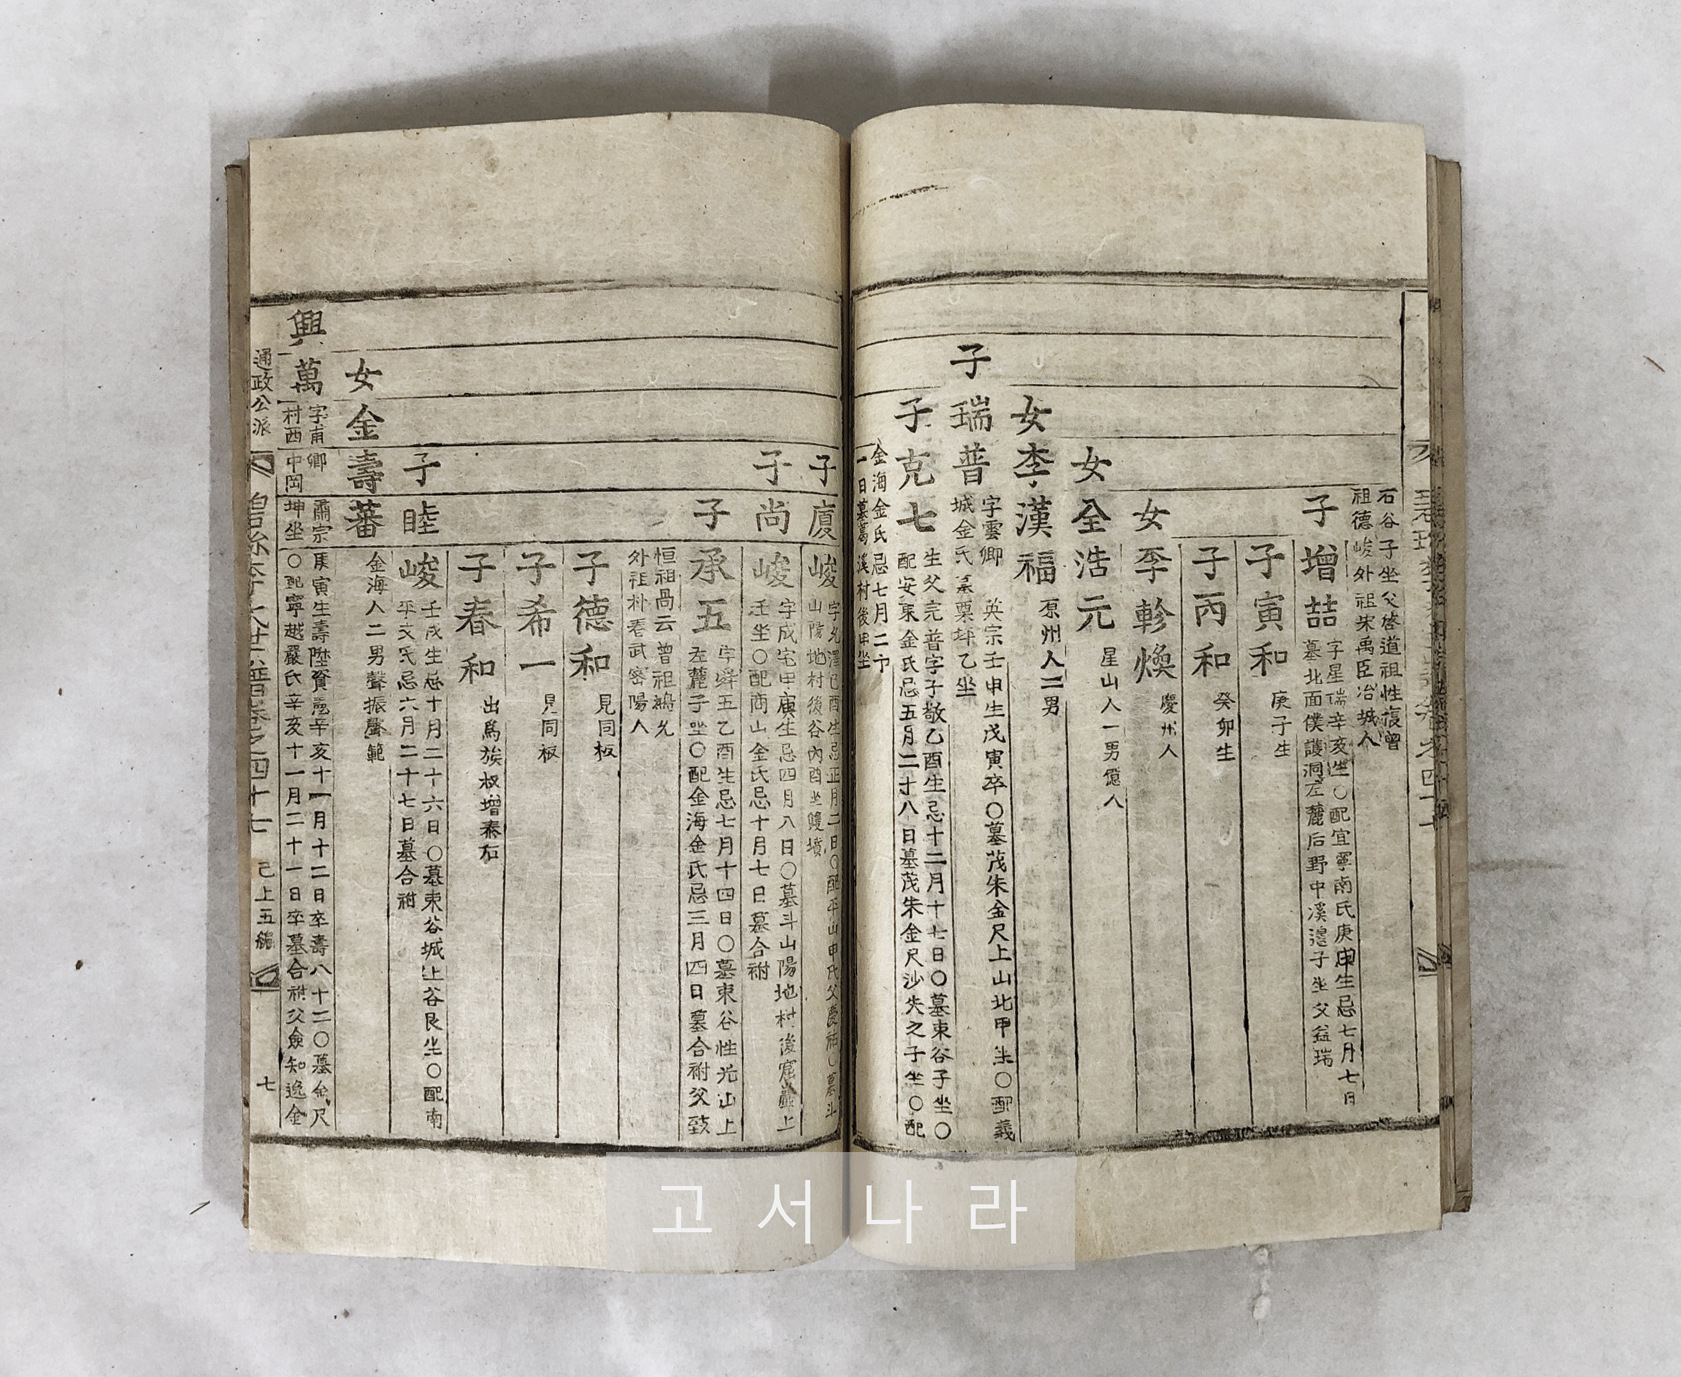 石谷子坐父啓道祖性復曾
祖德峻外祖宋禹臣冶城人
子增喆
字星瑞辛亥生○配宜寧南氏庚申生忌七月七日
墓北面僕護洞左麓后野中溪邊子坐父益瑞
子寅和
庚子生
子丙和
癸卯生
女李軫煥
慶州人
女全浩元
星山人一男億人
女李漢福
原州人二男
子瑞普
字雲卿 英宗壬申生戊寅卒○墓茂朱金尺上山北甲坐○配義
城金氏墓栗坪乙坐
子克七
生父完普字子敬乙酉生忌十二月十七日○墓東谷子坐○
配安東金氏忌五月二十八日墓茂朱金尺沙失之子坐○配
金海金氏忌七月二十
一日墓葛溪村後甲坐
子廈峻
字允澤己酉生忌正月二日○配平山申氏父慶祐○墓斗
山陽地村後谷內酉坐雙墳
子尚峻
字成宅甲庚生忌四月八日○墓斗山陽地村後窟巖上
壬坐○配商山金氏忌十月七日墓合祔
子承五
字舜五乙酉生忌七月十四日○墓東谷性光山上
左麓子坐○配金海金氏忌三月四日墓合祔父致
恒祖昌云曾祖鵬允
外祖朴春武密陽人
子德和
見同板
子希一
見同板
子春和
出爲族叔增泰后
子睦峻
壬戌生忌十月二十六日○墓東谷城上谷艮坐○配南
平文氏忌六月二十七日墓合祔
女金壽蕃
金海人二男聲振聲範
興萬
字甫卿 肅宗庚寅生壽陞資憲辛亥十一月十二日卒壽八十二○墓金尺
村西中岡坤坐○配寧越嚴氏辛亥十一月二十一日卒墓合祔父僉知逸金
通政公派
碧珍李氏世譜卷之四十七
己上五編
七
고서나라